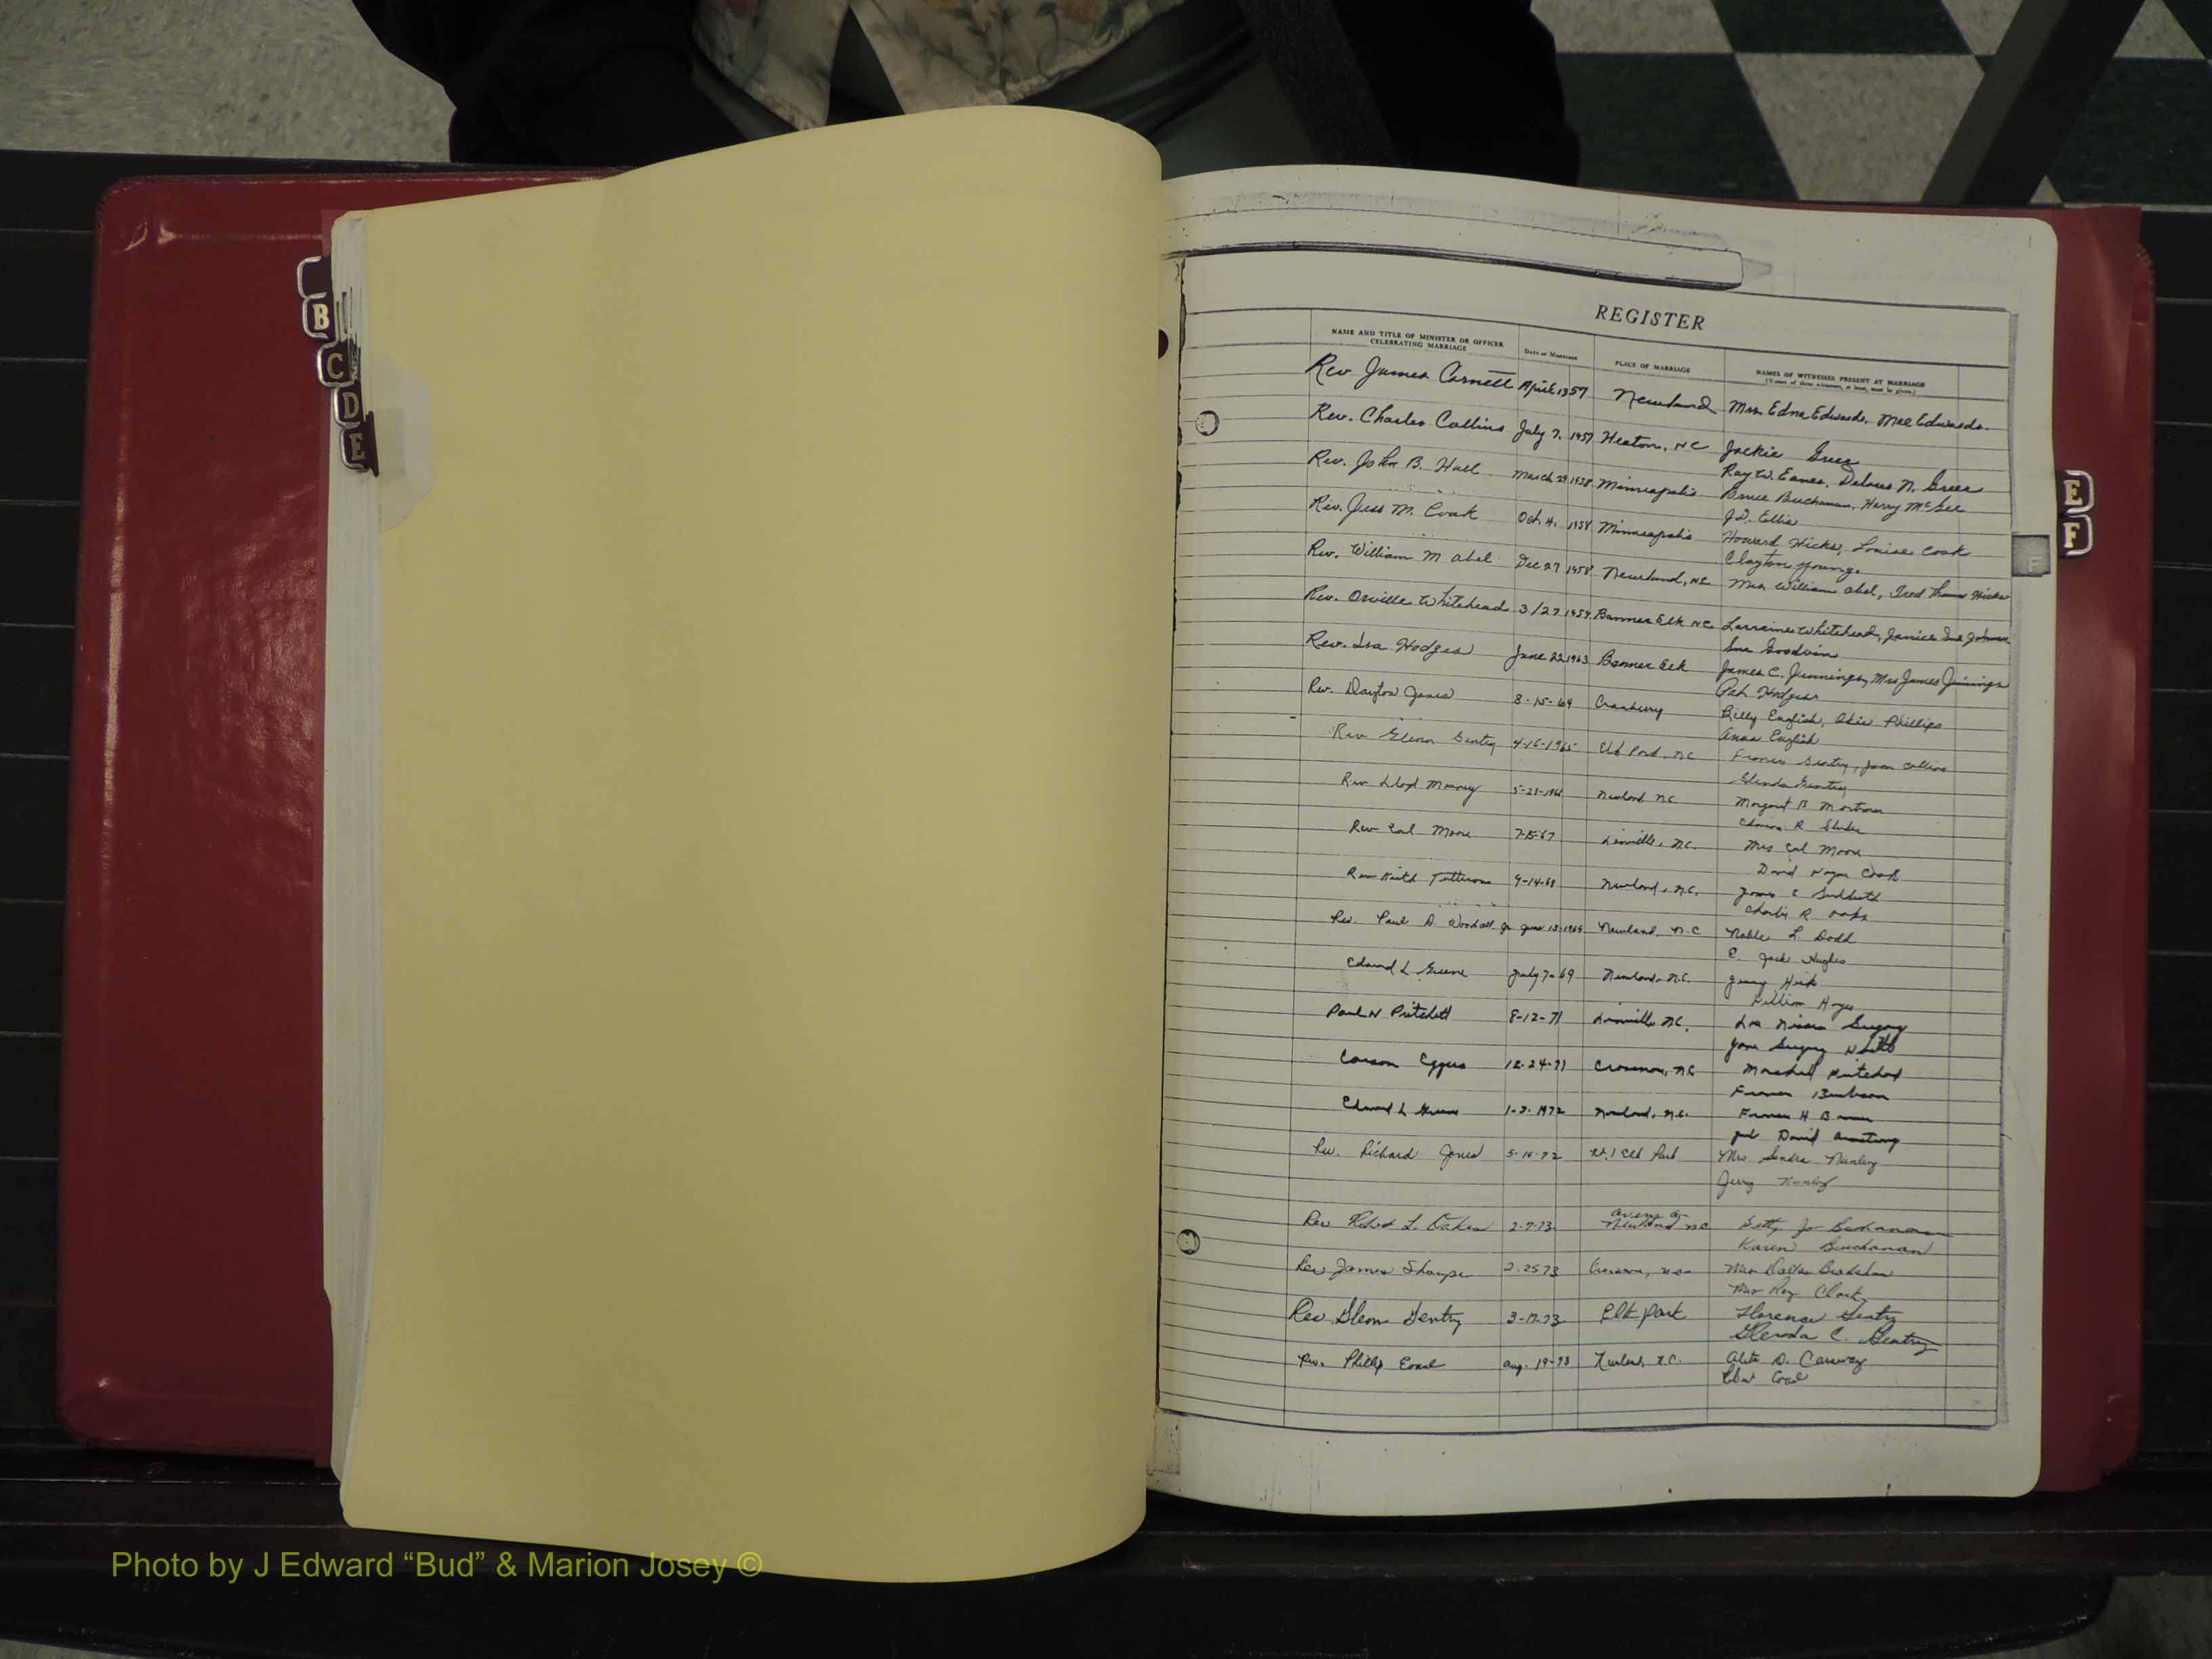 B
C
D
E
E
F
F
REGISTER
NAME AND TITLE OF MINISTER OR OFFICER CELEBRATING MARRIAGE
DATE OF MARRIAGE
PLACE OF MARRIAGE
NAMES OF WITNESSES PRESENT AT MARRIAGE
(Names of three witnesses, at least, must be given.)
Rev James Cornett April 13 57 Newland Mrs. Edna Edwards, Mae Edwards.
Rev. Charles Collins July 7, 1957 Heaton, NC Jackie Greer
Ray W. Eanes, Delores N. Greer
Rev. John B. Hall March 29 1958 Minneapolis Bruce Buchanan, Harry McGee
J.D. Ellis
Rev. Jess M. Cook Oct. 4, 1958 Minneapolis Howard Hicks, Louise Cook
Clayton Young.
Rev. William M Abel Dec 27 1958 Newland, NC Mrs. William Abel, Fred Thomas Hicks
Rev. Orville Whitehead 3/27 1959 Banner Elk NC Lorraine Whitehead, Janice Sue Johnson
Sue Goodwin
Rev. Ira Hodges June 22 1963 Banner Elk James C. Jennings, Mrs James Jennings
Pat Hodges
Rev. Dayton Jones 8-15-64 Cranberry Billy English, Okie Phillips
Anna English
Rev Glenn Gentry 4-16-1965 Elk Park, NC Frances Gentry, Joan Collins
Glenda Gentry
Rev Lloyd 5-21- Newland N.C. Margaret B
Edwina R
Rev Earl Moore 7-15-67 Linville, N.C. Mrs Earl Moore
David Wayne Cook
Rev Keith 9-14-68 Newland, N.C. James E Sudderth
Charlie R Oaks
Rev. Paul D. Woodall Jr June 13-1969 Newland, N.C Nable L. Dodd
E. Jack Hughes
Edward L Greene July 7-69 Newland, N.C. Jerry Hicks
Lillian Hayes
Paul N Pritchett 8-12-71 Linville N.C.
Carson Eggers 12-24-71 Crossnore, NC
Edward L Greene 1-3-1972 Newland, N.C. H
David Armstrong
Rev. Richard Jones 5-14-72 Rt. 1 Elk Park Mrs. Sandra Nunley
Jerry Nunley
Rev Robert L. Oakes 2-7-73 Avery Co
Newland NC Betty Jo Buchanan
Karen Buchanan
Rev James Sharpe 2-25 73 Crossnore, NC Mrs Dallas Bradshaw
Mrs Roy Clark
Rev Glenn Gentry 3-17-73 Elk Park Florence Gentry
Glenda C. Gentry
Rev. Phillip Aug. 19-73 Newland, N.C.
Photo by J Edward “Bud” & Marion Josey ©